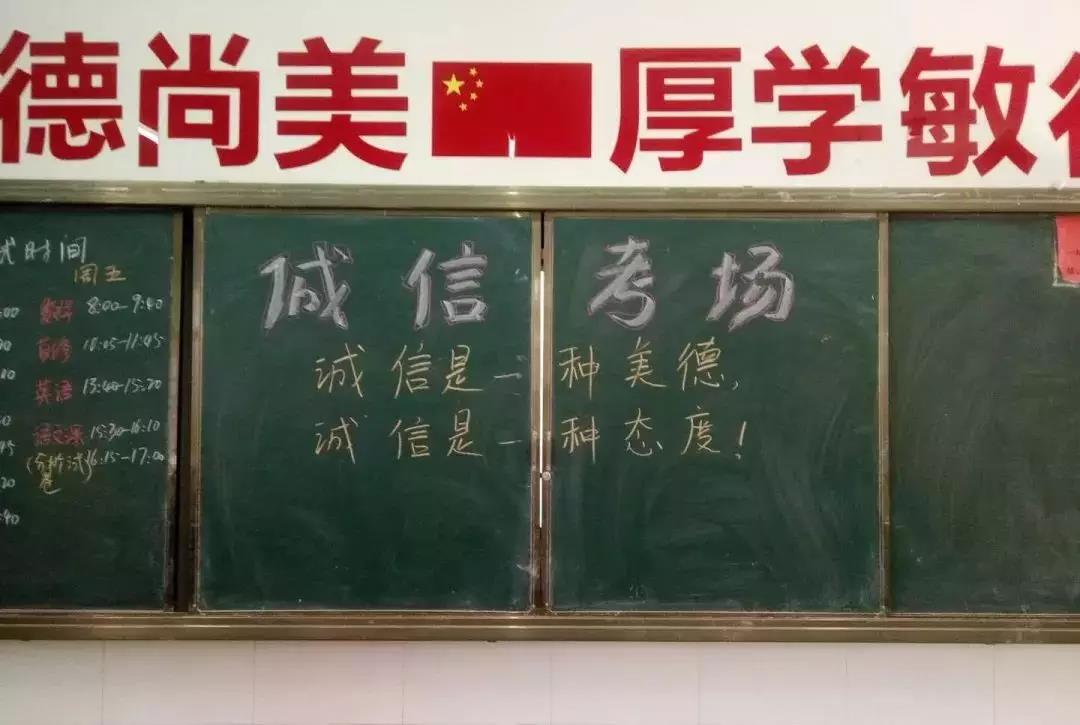 德尚美 厚学敏
诚信考场
诚信是一种美德,
诚信是一种态度!
时间
周五
数学 8:00-9:40
自修 10:05-11:45
英语 13:40-15:20
15:30-16:10
(分析试卷) 16:15-17:00